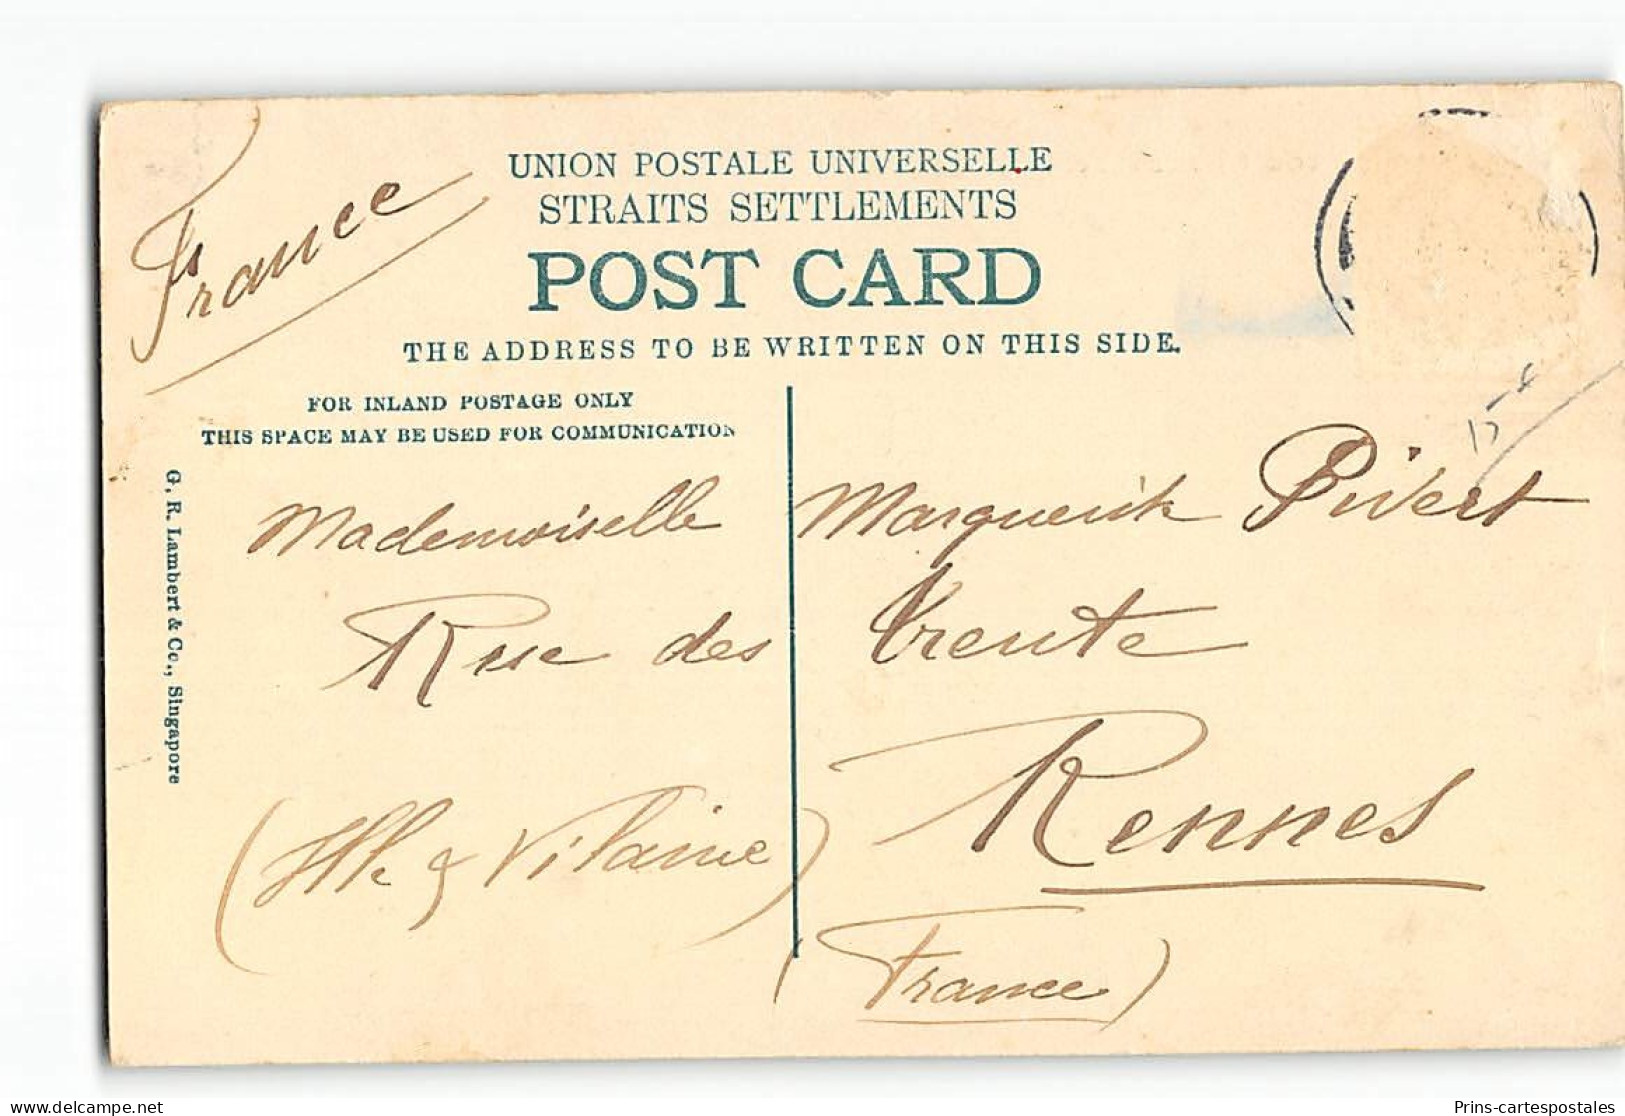 France
UNION POSTALE UNIVERSELLE
STRAITS SETTLEMENTS
POST CARD
THE ADDRESS TO BE WRITTEN ON THIS SIDE.
FOR INLAND POSTAGE ONLY
THIS SPACE MAY BE USED FOR COMMUNICATION
G. R. Lambert & Co., Singapore
Mademoiselle Marguerite Pivert
Rue des Trente
Rennes
(Ille & Vilaine)
(France)
Prins-cartespostales.com